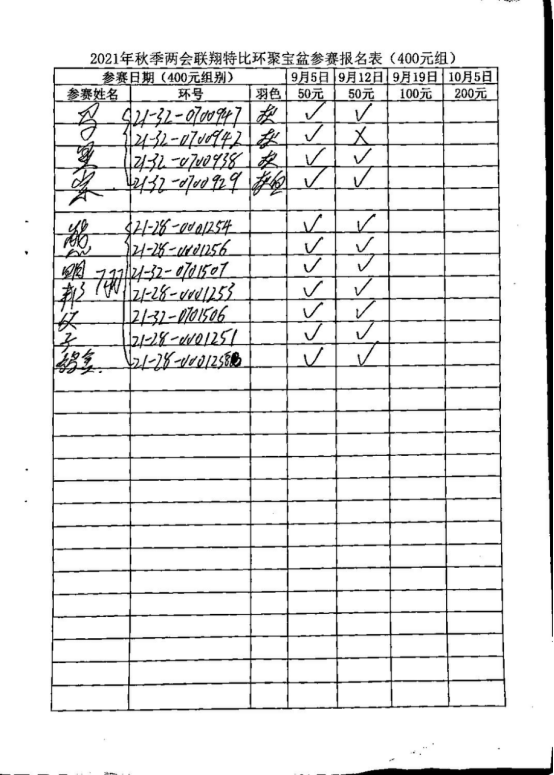 2021年秋季两会联翔特比环聚宝盆参赛报名表（400元组）
参赛日期（400元组别） 9月5日 9月12日 9月19日 10月5日
参赛姓名 环号 羽色 50元 50元 100元 200元
21-32-0700947 ✓ ✓
21-32-0700942 ✓ X
21-32-0700938 ✓ ✓
21-32-0700929 ✓ ✓
21-28-0001254 ✓ ✓
21-28-0001256 ✓ ✓
21-32-0701507 ✓ ✓
21-28-0001253 ✓ ✓
21-32-0701506 ✓ ✓
21-28-0001251 ✓ ✓
✓ ✓